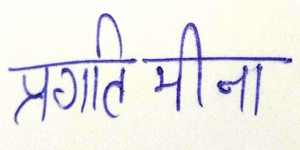 प्रगति मीना